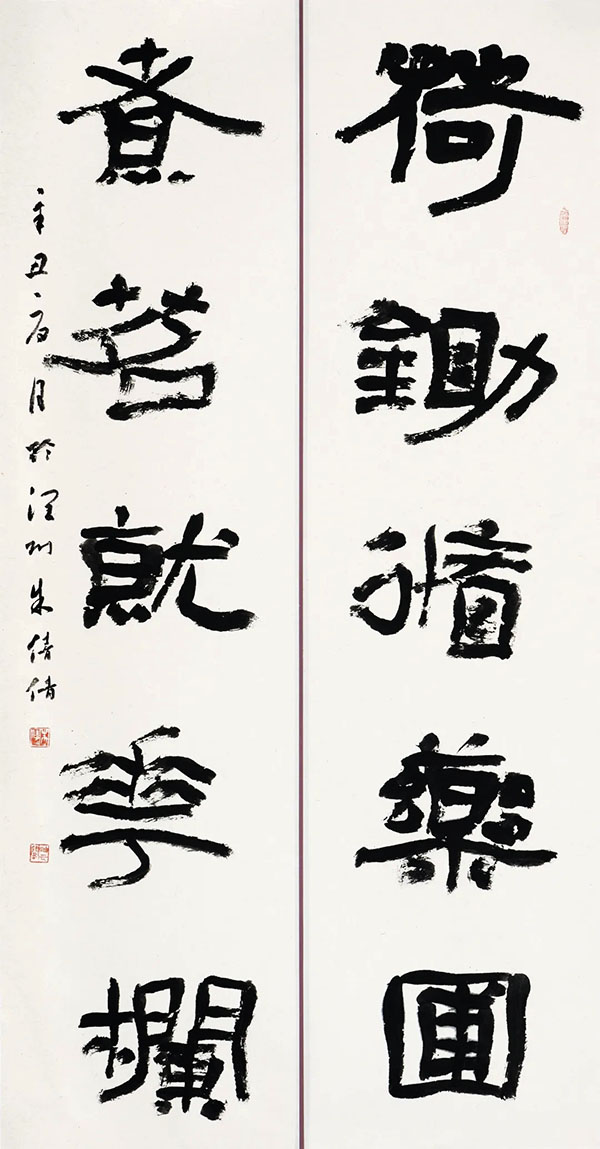 荷鋤循藥圃
煮茗就華欄
辛丑夏月於潤州朱倩倩